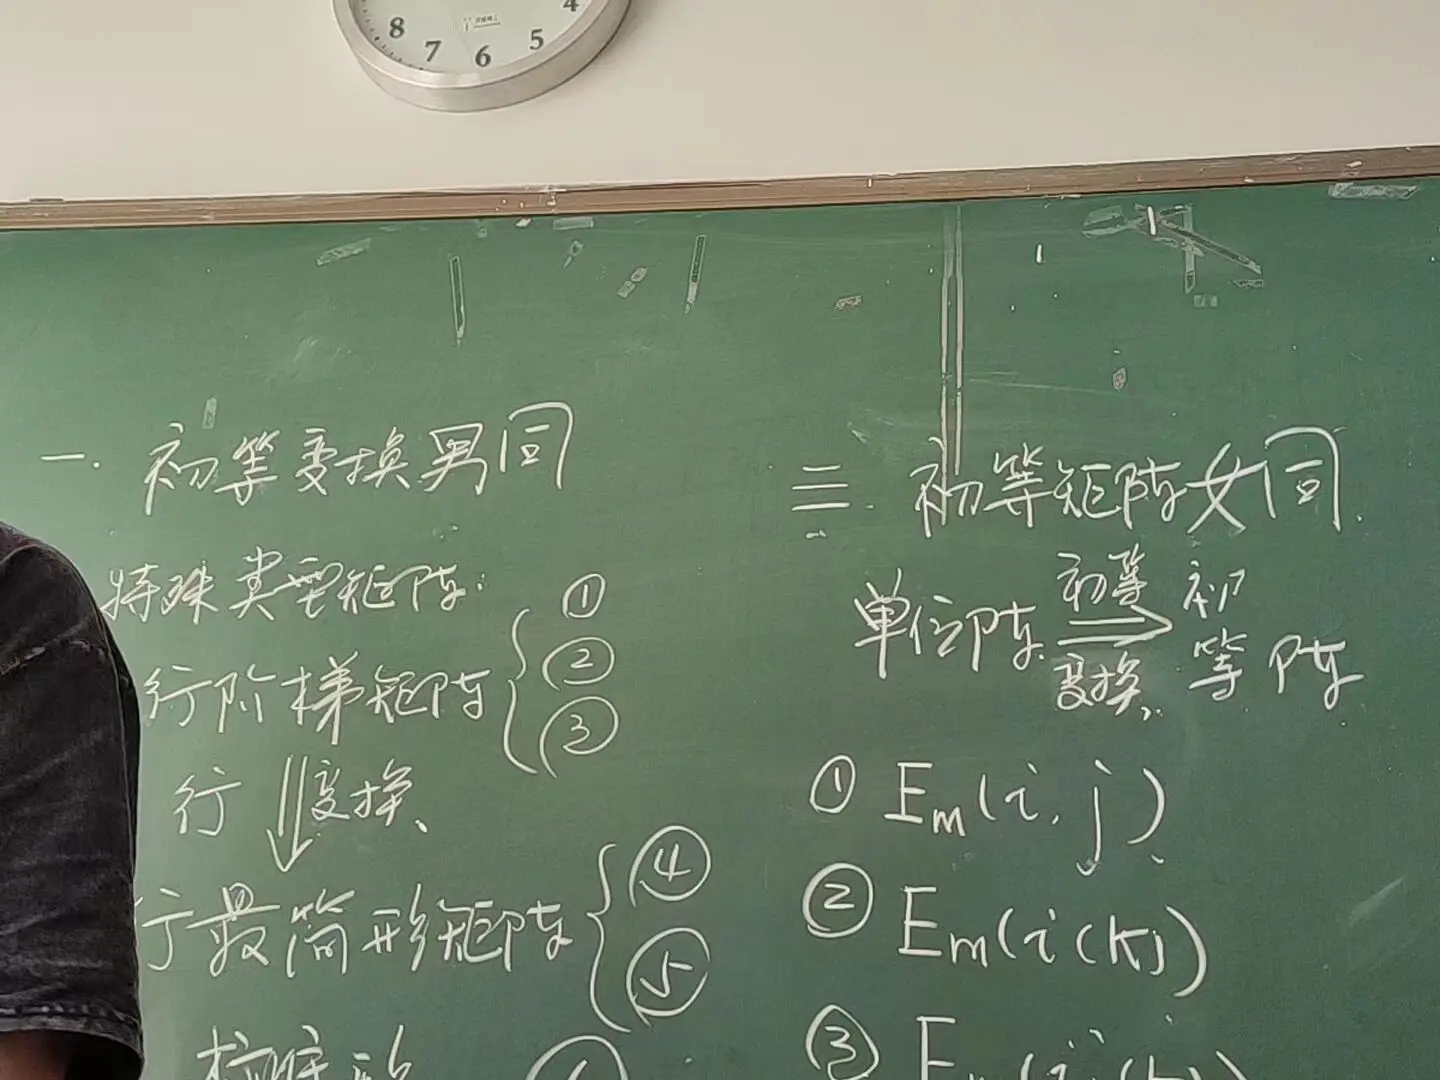 8 7 6 5 4
一. 初等变换男同
特殊类型矩阵:
行阶梯矩阵 { ① ② ③
行 ⇓ 变换
行最简形矩阵 { ④ ⑤
标准形
三. 初等矩阵女同.
单位阵 初等变换 ⟹ 初等阵
① Em(i,j)
② Em(i(k))
③ Em(i,j(k))